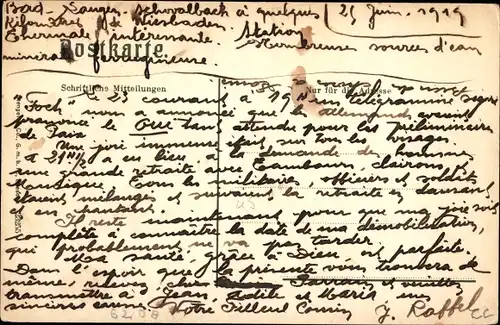 Bad-Langen-Schwalbach à quelques 25 Juin 1919
Kilomètres de Wiesbaden Station
Thermale intéressante Nombreuses sources d'eau
minérale ferrugineuse
Postkarte
Schriftliche Mitteilungen
Nur für die Adresse
Le 23 courant à 19 h un télégramme signé
"Foch" nous a annoncé que les allemands avaient
prononcé le OUI tant attendu pour les préliminaires
de Paix
Une joie immense sur tous les visages.
à 21 h a eu lieu à la demande du
une grande retraite avec Tambours, clairons
Musique Tous les militaires officiers et soldats
étaient mélangés et suivaient la retraite en dansant
et en chantant.
Il reste maintenant pour que ma joie soit
complète à connaître la date de ma démobilisation,
qui probablement ne va pas tarder.
Ma santé, grâce à Dieu, est parfaite,
Dans l'espoir que la présente vous trouvera de
même, recevez chers Parrain et veuillez
transmettre à Jean, Odile et Maria mes
sincères Votre Filleul Cousin J. Raffel